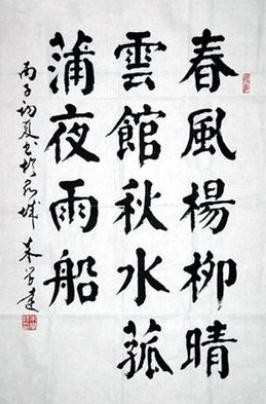 春風楊柳晴
雲館秋水菰
蒲夜雨船
丙子初夏书於城 朱